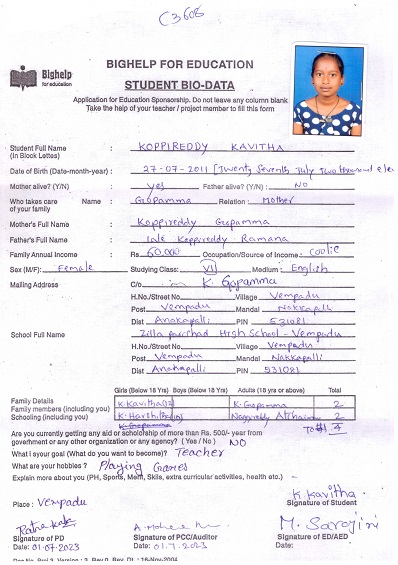 C3608
BIGHELP FOR EDUCATION
Bighelp
for education
STUDENT BIO-DATA
Application for Education Sponsorship. Do not leave any column blank
Take the help of your teacher / project member to fill this form
Student Full Name : KOPPIREDDY KAVITHA
(In Block Lettes)
Date of Birth (Date-month-year) : 27-07-2011 [Twenty Seventh July Two thousand ele
Mother alive? (Y/N) : yes Father alive? (Y/N) : NO
Who takes care Name : Gopamma Relation : Mother
of your family
Mother's Full Name : Koppireddy Gopamma
Father's Full Name : late Koppireddy Ramana
Family Annual Income : Rs 60,000 Occupation/Source of Income : coolie
Sex (M/F) : Female Studying Class : VII Medium : English
Mailing Address C/o K. Gopamma
H.No./Street No Village Vempadu
Post Vempadu Mandal Nakkapalli
Dist Anakapalli PIN 531081
School Full Name Zilla parishad High School - Vempadu
H.No./Street No. Village Vempadu
Post Vempadu Mandal Nakkapalli
Dist Anakapalli PIN 531081
Girls (Below 18 Yrs) Boys (Below 18 Yrs) Adults (18 yrs or above) Total
Family Details
Family members (including you) K. Kavitha K. Gopamma 2
Schooling (including you) K. Harshitha Nagireddy 2
K. Gopamma
Total 4
Are you currently getting any aid or scholarship of more than Rs. 500/- year from
government or any other organization or any agency? ( Yes / No ) NO
What is your goal (What do you want to become)? Teacher
What are your hobbies ? Playing Games
Explain more about you (PH, Sports, Merit, Skils, extra curricular activities, health etc.)
Place : Vempadu
K. Kavitha
Signature of Student
M. Sarojini
Signature of PD Signature of PCC/Auditor Signature of ED/AED
Date: 01.07.2023 Date: 01.7.2023 Date: